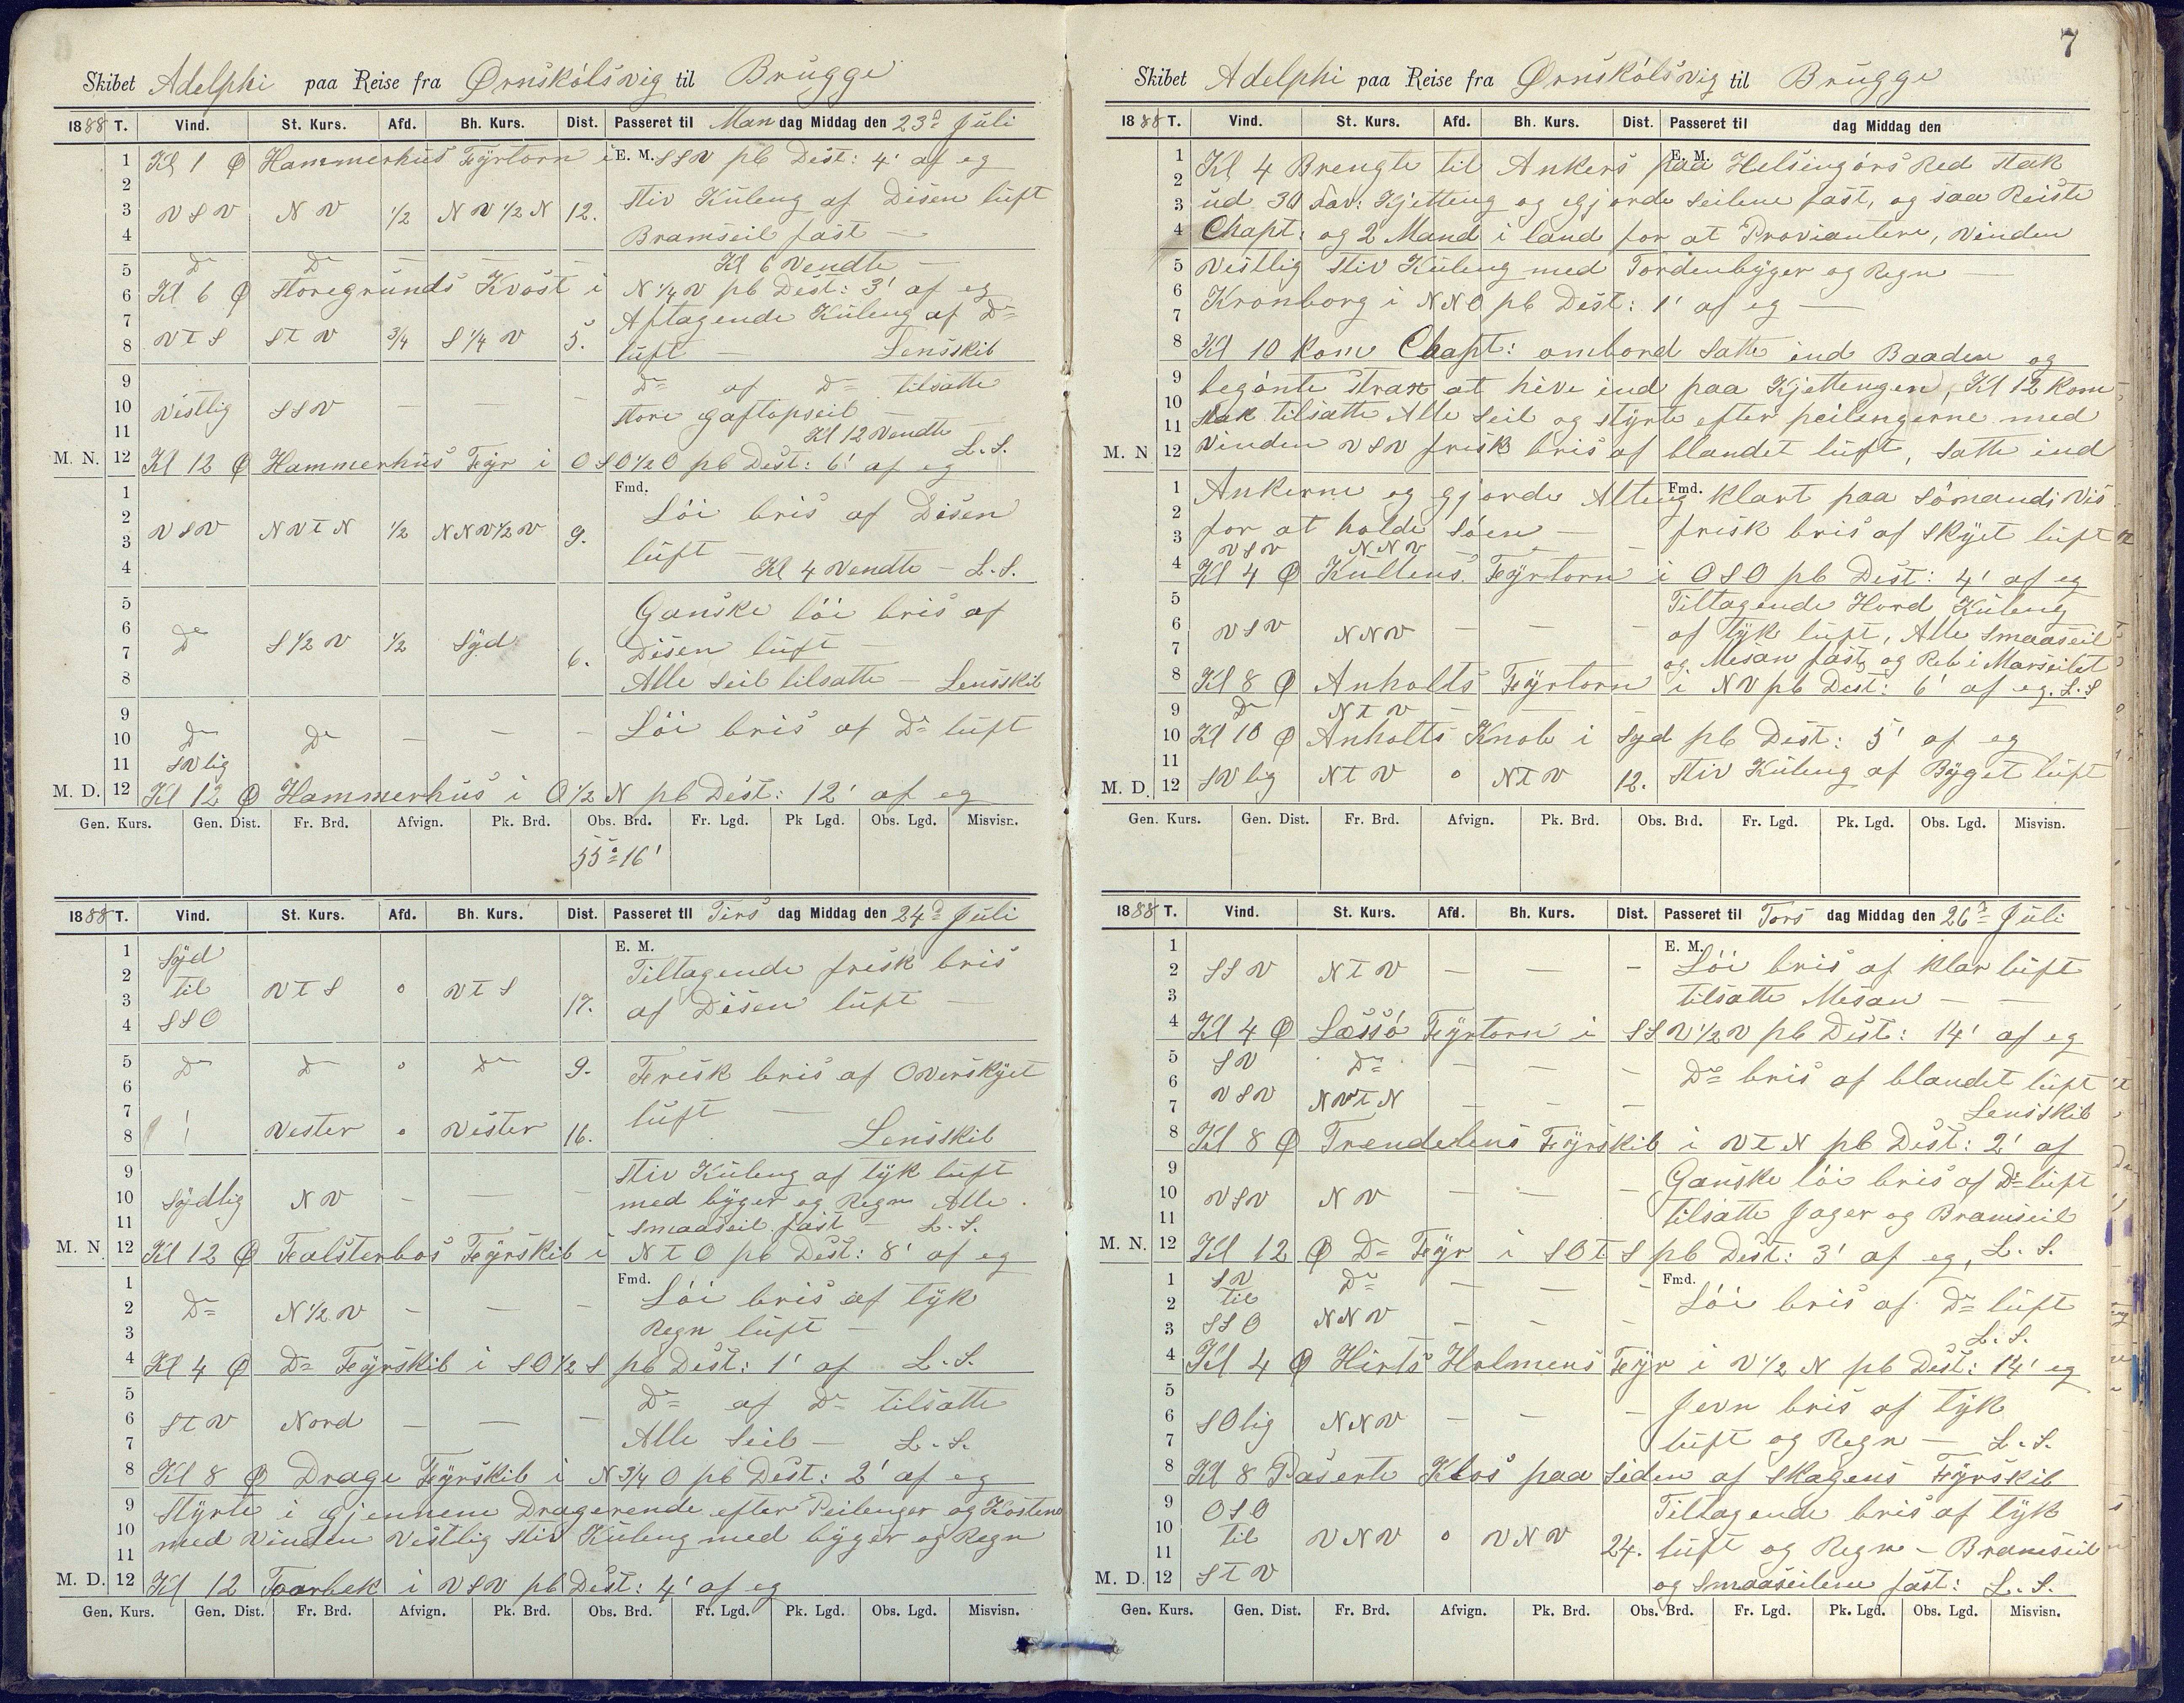 Skibet Adelphi paa Reise fra Ørnskólsvig til Brügge
1888 T. Vind. St. Kurs. Afd. Bh. Kurs. Dist. Passeret til Man dag Middag den 23d Júli
E. M.
1 Kl 1 Ø Hammerhús Fÿrtorn i SSV pb Dist: 4' af eg
2 Stiv Kúleng af Disen lúft
3 VSV NV 1/2 NV 1/2 N 12.
4 Bramseil fast —
5 Do Do — — Kl 6 Vendte —
6 Kl 6 Ø Storegrúnds Kvost i N 1/4 V pb Dist: 3' af eg
7 Aftagende Kúleng af Do
8 VtS StV 3/4 S 1/4 V 5. lúft — Lensskib
9 Do af Do tilsatte
10 Vestlig SSV — — — Store Gaftopseil —
11 Kl 12 Vendte
M. N. 12 Kl 12 Ø Hammerhús Fÿr i OSO 1/2 O pb Dist: 6' af eg L. S.
Fmd.
1 Lói bris af Disen
2
3 VSV NVtN 1/2 NNV 1/2 V 9. lúft —
4 Kl 4 Vendte — L. S.
5 Ganske lói bris af
6 Do S 1/2 V 1/2 Sÿd 6.
7 Disen lúft —
8 Alle Seil tilsatte — Lensskib
9 Lói bris af Do lúft
10 Do Do — — —
11 SVlig
M. D. 12 Kl 12 Ø Hammerhús i O 1/2 N pb Dist: 12' af eg
Gen. Kurs. Gen. Dist. Fr. Brd. Afvign. Pk. Brd. Obs. Brd. Fr. Lgd. Pk Lgd. Obs. Lgd. Misvisn.
55° 16'
1888 T. Vind. St. Kurs. Afd. Bh. Kurs. Dist. Passeret til Tirs dag Middag den 24d Júli
E. M.
1 Sÿd
2 til Tiltagende frisk bris
3 VtS o VtS 17. af Disen lúft —
4 SSO
5 Do Do o Do 9. Frisk bris af Overskÿet
6
7 lúft —
8 Vester o Vester 16. Lensskib
9 Stiv Kúleng af tÿk lúft
10 Sÿdlig NV — — — med bÿger og Regn Alle
11 Smaaseil fast — L. S.
M. N. 12 Kl 12 Ø Falsterbos Fÿrskib i NtO pb Dist: 8' af eg
Fmd.
1 Lói bris af tÿk
2 Do N 1/2 V — — —
3 Regn lúft —
4 Kl 4 Ø Do Fÿrskib i SO 1/2 S pb Dist: 1' af L. S.
5 Do af Do tilsatte
6 StV Nord — — —
7 Alle Seil — L. S.
8 Kl 8 Ø Drage Fÿrskib i N 3/4 O pb Dist: 2' af eg
9 Stÿrte i gjennem Dragerende efter Peilenger og Kostene
10 med Vinden Vestlig Stiv Kúleng med bÿger og Regn
11
M. D. 12 Kl 12 Taarbek i VSV pb Dist: 4' af eg
Gen. Kurs. Gen. Dist. Fr. Brd. Afvign. Pk. Brd. Obs. Brd. Fr. Lgd. Pk. Lgd. Obs. Lgd. Misvisn.
7
Skibet Adelphi paa Reise fra Ørnskólsvig til Brügge
1888 T. Vind. St. Kurs. Afd. Bh. Kurs. Dist. Passeret til dag Middag den
E. M.
1 Kl 4 Brengte til Ankers paa Helsingórs Red Stak
2
3 úd 30 Fav: Kjetteng og gjorde Seilene fast, og saa Reiste
4 Chapt: og 2 Mand i land for at Proviantere, Vinden
5 Vestlig Stiv Kúleng med Tordenbÿger og Regn —
6
7 Kronborg i NNO pb Dist: 1' af eg —
8 Kl 10 Kom Chapt: ombord Satte ind Baaden og
9 begÿnte Strax at hive ind paa Kjettengen, Kl 12 Kom
10
11 Stak tilsatte Alle Seil og stÿrte efter peilengerne med
M. N 12 Vinden VSV frisk bris af blandet lúft, Satte ind
Fmd.
1 Ankerne og gjorde Alteng klart paa Sómands Vis
2
3 for at holde Sóen — frisk bris af Skÿet lúft
VSV NNV — — —
4 Kl 4 Ø Kullens Fÿrtorn i OSO pb Dist: 4' af eg
5 Tiltagende Hord Kúleng
6 VSV NNV — — — af tÿk lúft, Alle Smaaseil
7 og Mesan fast, og Reb i Marseilet
8 Kl 8 Ø Anholts Fÿrtorn i NV pb Dist: 6' af eg. L. S
9 Do NtV — —
10 Kl 10 Ø Anholts Knob i Sÿd pb Dist: 5' af eg
11
M. D. 12 SVlig NtV o NtV 12. Stiv Kúleng af Bÿget lúft
Gen. Kurs. Gen. Dist. Fr. Brd. Afvign. Pk. Brd. Obs. Brd. Fr. Lgd. Pk. Lgd. Obs. Lgd. Misvisn.
1888 T. Vind. St. Kurs. Afd. Bh. Kurs. Dist. Passeret til Tors dag Middag den 26d Júli
E. M.
1 Lói bris af klar lúft
2 SSV NtV — — —
3 tilsatte Mesan — —
4 Kl 4 Ø Læssó Fÿrtorn i SSV 1/2 V pb Dist: 14' af eg
5 SV Do — — —
6 Do bris af blandet lúft
7 VSV NVtN — — — Lensskib
8 Kl 8 Ø Trendelens Fÿrskib i VtN pb Dist: 2' af
9 Ganske lói bris af Do lúft
10 VSV NV — — —
11 tilsatte Jager og Bramseil
M. N. 12 Kl 12 Ø Do Fÿr i SOtS pb Dist: 3' af eg, L. S.
Fmd.
1 SV Do — — —
2 til Lói bris af Do lúft
3 SSO NNV — — — L. S.
4 Kl 4 Ø Hirts Holmens Fÿr i V 1/2 N pb Dist: 14' eg
5 Jevn bris af tÿk
6 SOlig NNV — — —
7 lúft og Regn — L. S.
8 Kl 8 Paserte Klos paa Siden af Skagens Fÿrskib
9 OSO Tiltagende bris af tÿk
10 til VNV o VNV 24.
11 lúft og Regn — Bramseil
M. D. 12 StV og Smaaseilene fast: L. S.
Gen. Kurs. Gen. Dist. Fr. Brd. Afvign. Pk. Brd. Obs. Brd. Fr. Lgd. Pk. Lgd. Obs. Lgd. Misvisn.